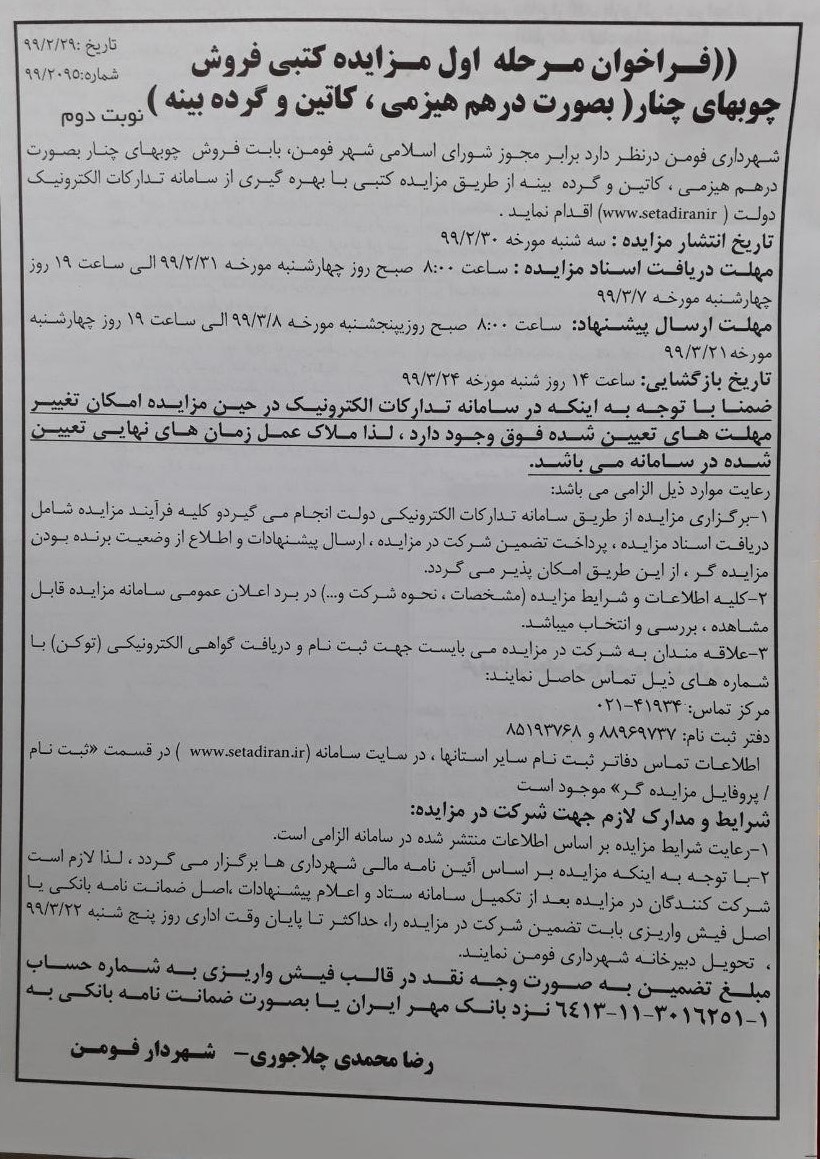 تاریخ :۹۹/۲/۲۹
شماره:۹۹/۲۰۹۵
((فراخوان مرحله اول مزایده کتبی فروش
چوبهای چنار( بصورت درهم هیزمی ، کاتین و گرده بینه ) نوبت دوم
شهرداری فومن درنظر دارد برابر مجوز شورای اسلامی شهر فومن، بابت فروش چوبهای چنار بصورت
درهم هیزمی ، کاتین و گرده بینه از طریق مزایده کتبی با بهره گیری از سامانه تدارکات الکترونیک
دولت ( www.setadiranir) اقدام نماید .
تاریخ انتشار مزایده : سه شنبه مورخه ۹۹/۲/۳۰
مهلت دریافت اسناد مزایده : ساعت ۸:۰۰ صبح روز چهارشنبه مورخه ۹۹/۲/۳۱ الی ساعت ۱۹ روز
چهارشنبه مورخه ۹۹/۳/۷
مهلت ارسال پیشنهاد: ساعت ۸:۰۰ صبح روزپنجشنبه مورخه ۹۹/۳/۸ الی ساعت ۱۹ روز چهارشنبه
مورخه ۹۹/۳/۲۱
تاریخ بازگشایی: ساعت ۱۴ روز شنبه مورخه ۹۹/۳/۲۴
ضمنا با توجه به اینکه در سامانه تدارکات الکترونیک در حین مزایده امکان تغییر
مهلت های تعیین شده فوق وجود دارد ، لذا ملاک عمل زمان های نهایی تعیین
شده در سامانه می باشد.
رعایت موارد ذیل الزامی می باشد:
۱-برگزاری مزایده از طریق سامانه تدارکات الکترونیکی دولت انجام می گیردو کلیه فرآیند مزایده شامل
دریافت اسناد مزایده ، پرداخت تضمین شرکت در مزایده ، ارسال پیشنهادات و اطلاع از وضعیت برنده بودن
مزایده گر ، از این طریق امکان پذیر می گردد.
۲-کلیه اطلاعات و شرایط مزایده (مشخصات ، نحوه شرکت و...) در برد اعلان عمومی سامانه مزایده قابل
مشاهده ، بررسی و انتخاب میباشد.
۳-علاقه مندان به شرکت در مزایده می بایست جهت ثبت نام و دریافت گواهی الکترونیکی (توکن) با
شماره های ذیل تماس حاصل نمایند:
مرکز تماس: ۴۱۹۳۴-۰۲۱
دفتر ثبت نام: ۸۸۹۶۹۷۳۷ و ۸۵۱۹۳۷۶۸
اطلاعات تماس دفاتر ثبت نام سایر استانها ، در سایت سامانه (www.setadiran.ir ) در قسمت «ثبت نام
/ پروفایل مزایده گر» موجود است
شرایط و مدارک لازم جهت شرکت در مزایده:
۱-رعایت شرایط مزایده بر اساس اطلاعات منتشر شده در سامانه الزامی است.
۲-با توجه به اینکه مزایده بر اساس آئین نامه مالی شهرداری ها برگزار می گردد ، لذا لازم است
شرکت کنندگان در مزایده بعد از تکمیل سامانه ستاد و اعلام پیشنهادات ،اصل ضمانت نامه بانکی یا
اصل فیش واریزی بابت تضمین شرکت در مزایده را، حداکثر تا پایان وقت اداری روز پنج شنبه ۹۹/۳/۲۲
، تحویل دبیرخانه شهرداری فومن نمایند.
مبلغ تضمین به صورت وجه نقد در قالب فیش واریزی به شماره حساب
۱-۳۰۱۶۲۵۱-۱۱-۶۴۱۳ نزد بانک مهر ایران یا بصورت ضمانت نامه بانکی به
رضا محمدی چلاجوری- شهردار فومن